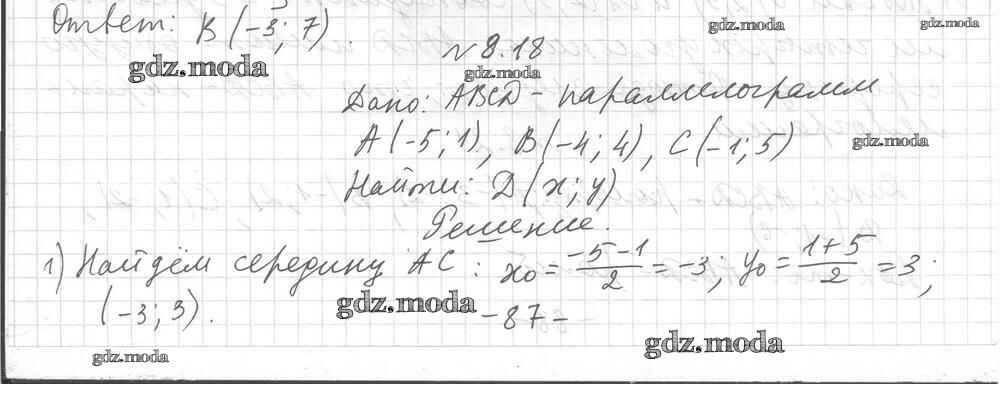 Ответ: B (-3; 7).
gdz.moda
gdz.moda
gdz.moda
№ 8.18
gdz.moda
Дано: ABCD - параллелограмм
A (-5; 1), B (-4; 4), C (-1; 5)
gdz.moda
Найти: D (x; y)
Решение.
1) Найдём середину AC: x₀ = \frac{-5-1}{2} = -3; y₀ = \frac{1+5}{2} = 3;
(-3; 3).
gdz.moda
-87-
gdz.moda
gdz.moda